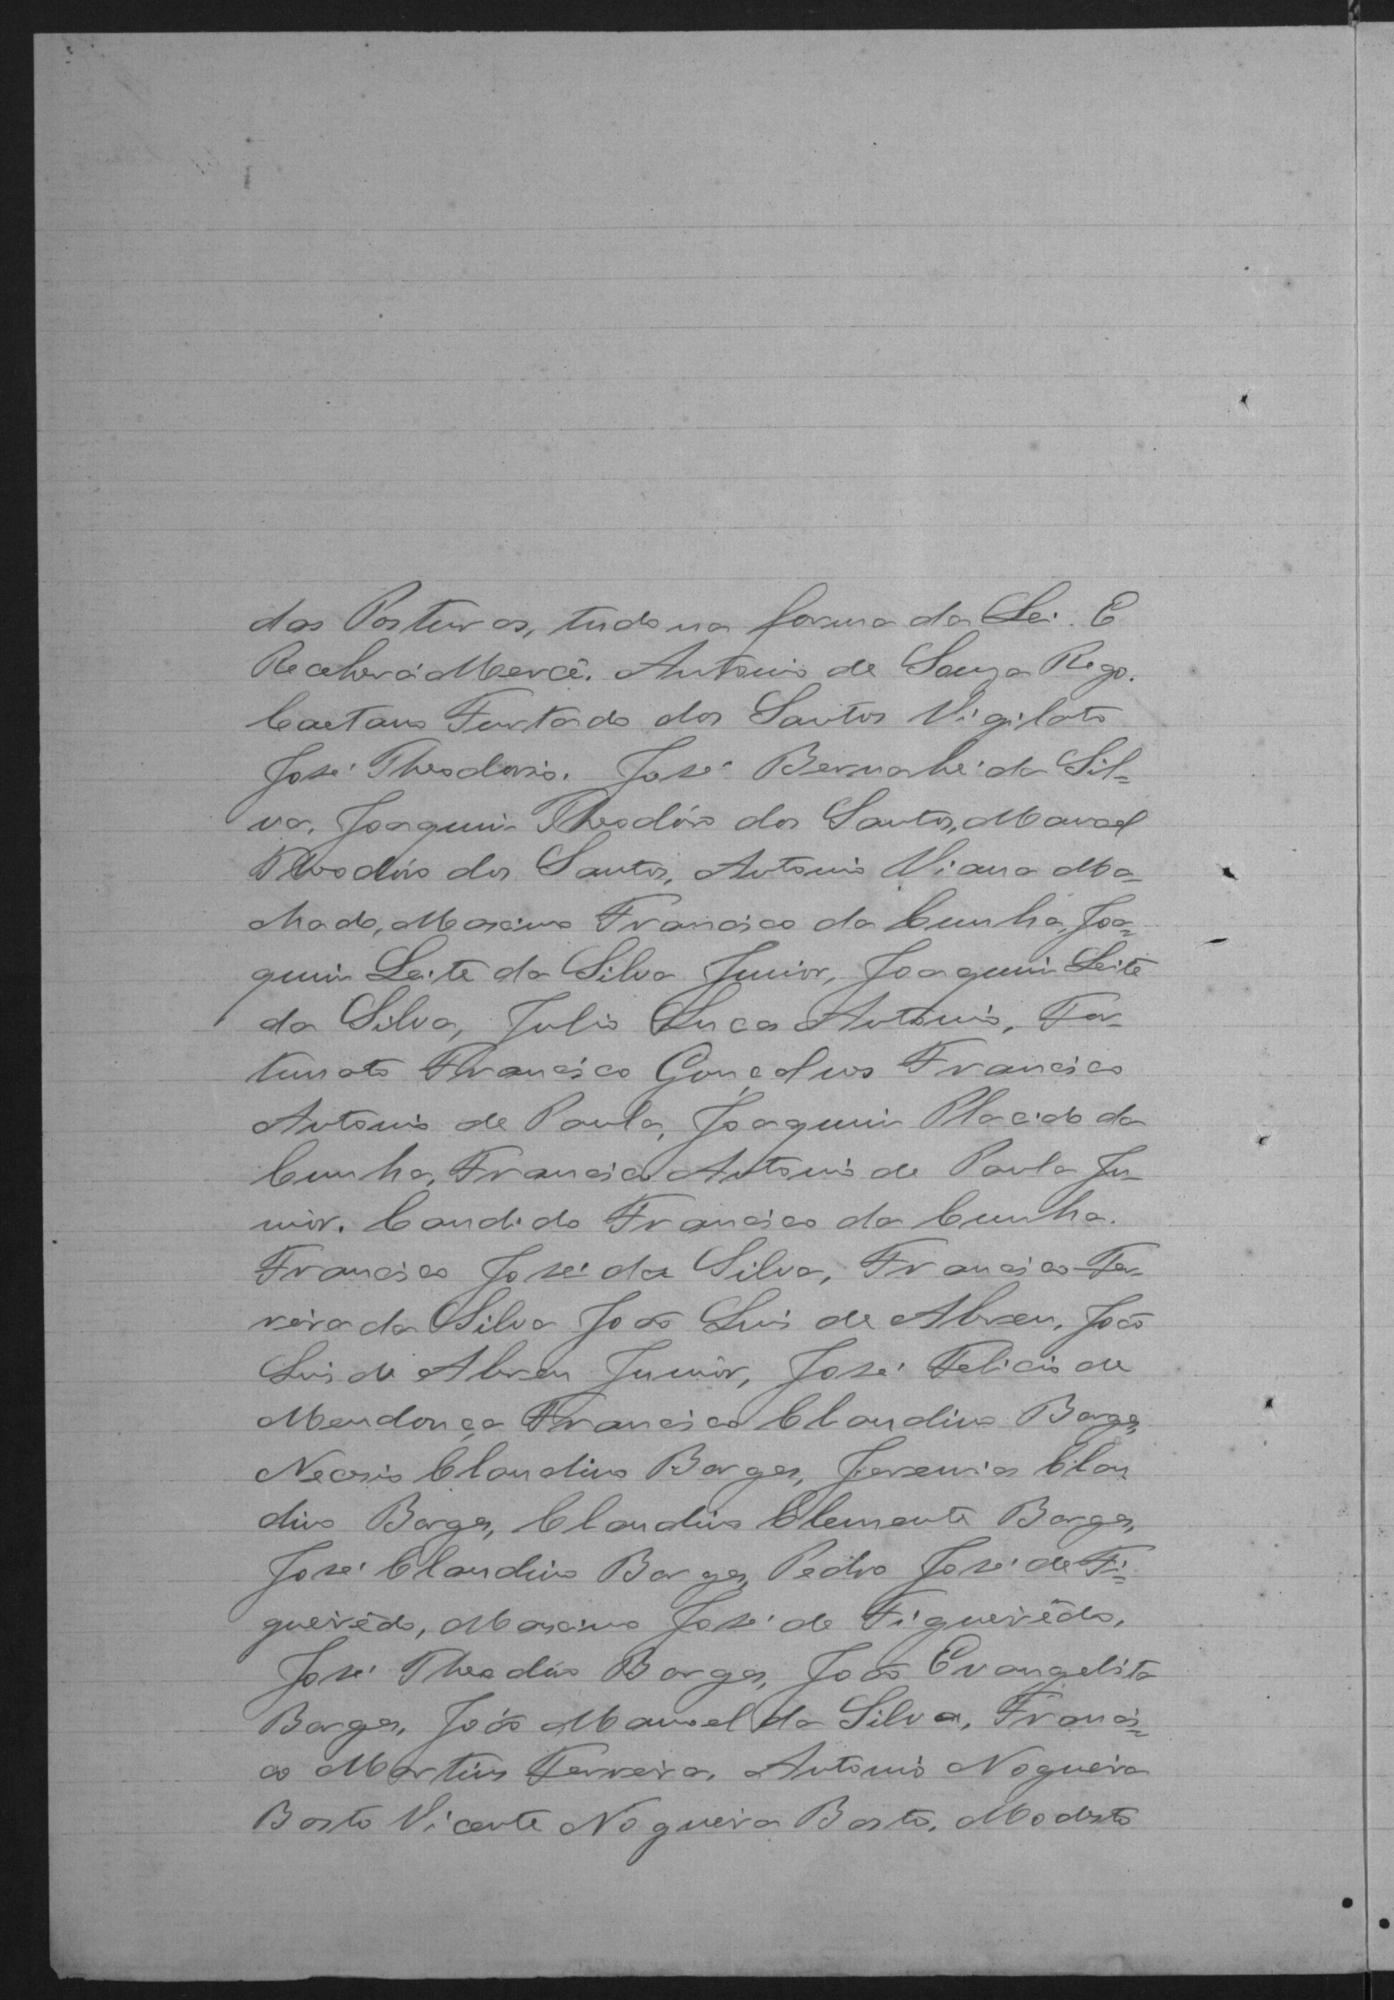 das Posturas, tudo na forma da Lei. E
Receberá Mercê. Antonio de Souza Rego.
Caetano Furtado dos Santos Vigilato
José Theodorio. José Bernabé da Sil=
va, Joaquim Theodóro dos Santos, Manoel
Theodóro dos Santos, Antonio Viana Ma=
chado, Maximo Francisco da Cunha, Joa=
quim Leite da Silva Junior, Joaquim Leite
da Silva, Julio Lucas Antonio, For=
tunato Francisco Gonçalves Francisco
Antonio de Paula, Joaquim Placido da
Cunha, Francisco Antonio de Paula Ju=
nior. Candido Francisco da Cunha.
Francisco José da Silva, Francisco Fer=
reira da Silva João Luis de Abreu, João
Luis de Abreu Junior, José Felicio de
Mendonça Francisco Claudino Borges,
Claudino Borges, Jeremias Clau
dino Borges, Claudino Clemente Borges,
José Claudino Borges, Pedro José de Fi=
gueirêdo, Maximo José de Figueirêdo,
José Theodóro Borges, João Evangelista
Borges, João Manoel da Silva, Francis=
co Martins Ferreira, Antonio Nogueira
Basto Vicente Nogueira Basto, Modesto